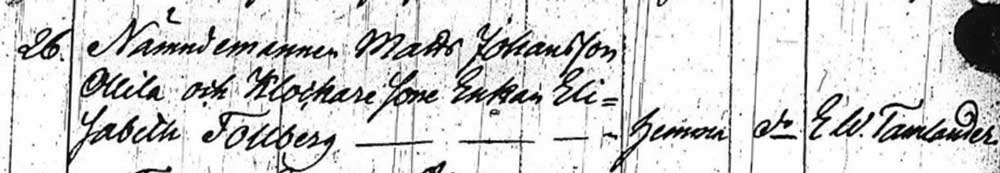 26. Nämndemannen Matts Johansson
Ollila och Klockare sone Enkan Eli=
sabeth Follberg — — — hemma do E W. Tamlander.